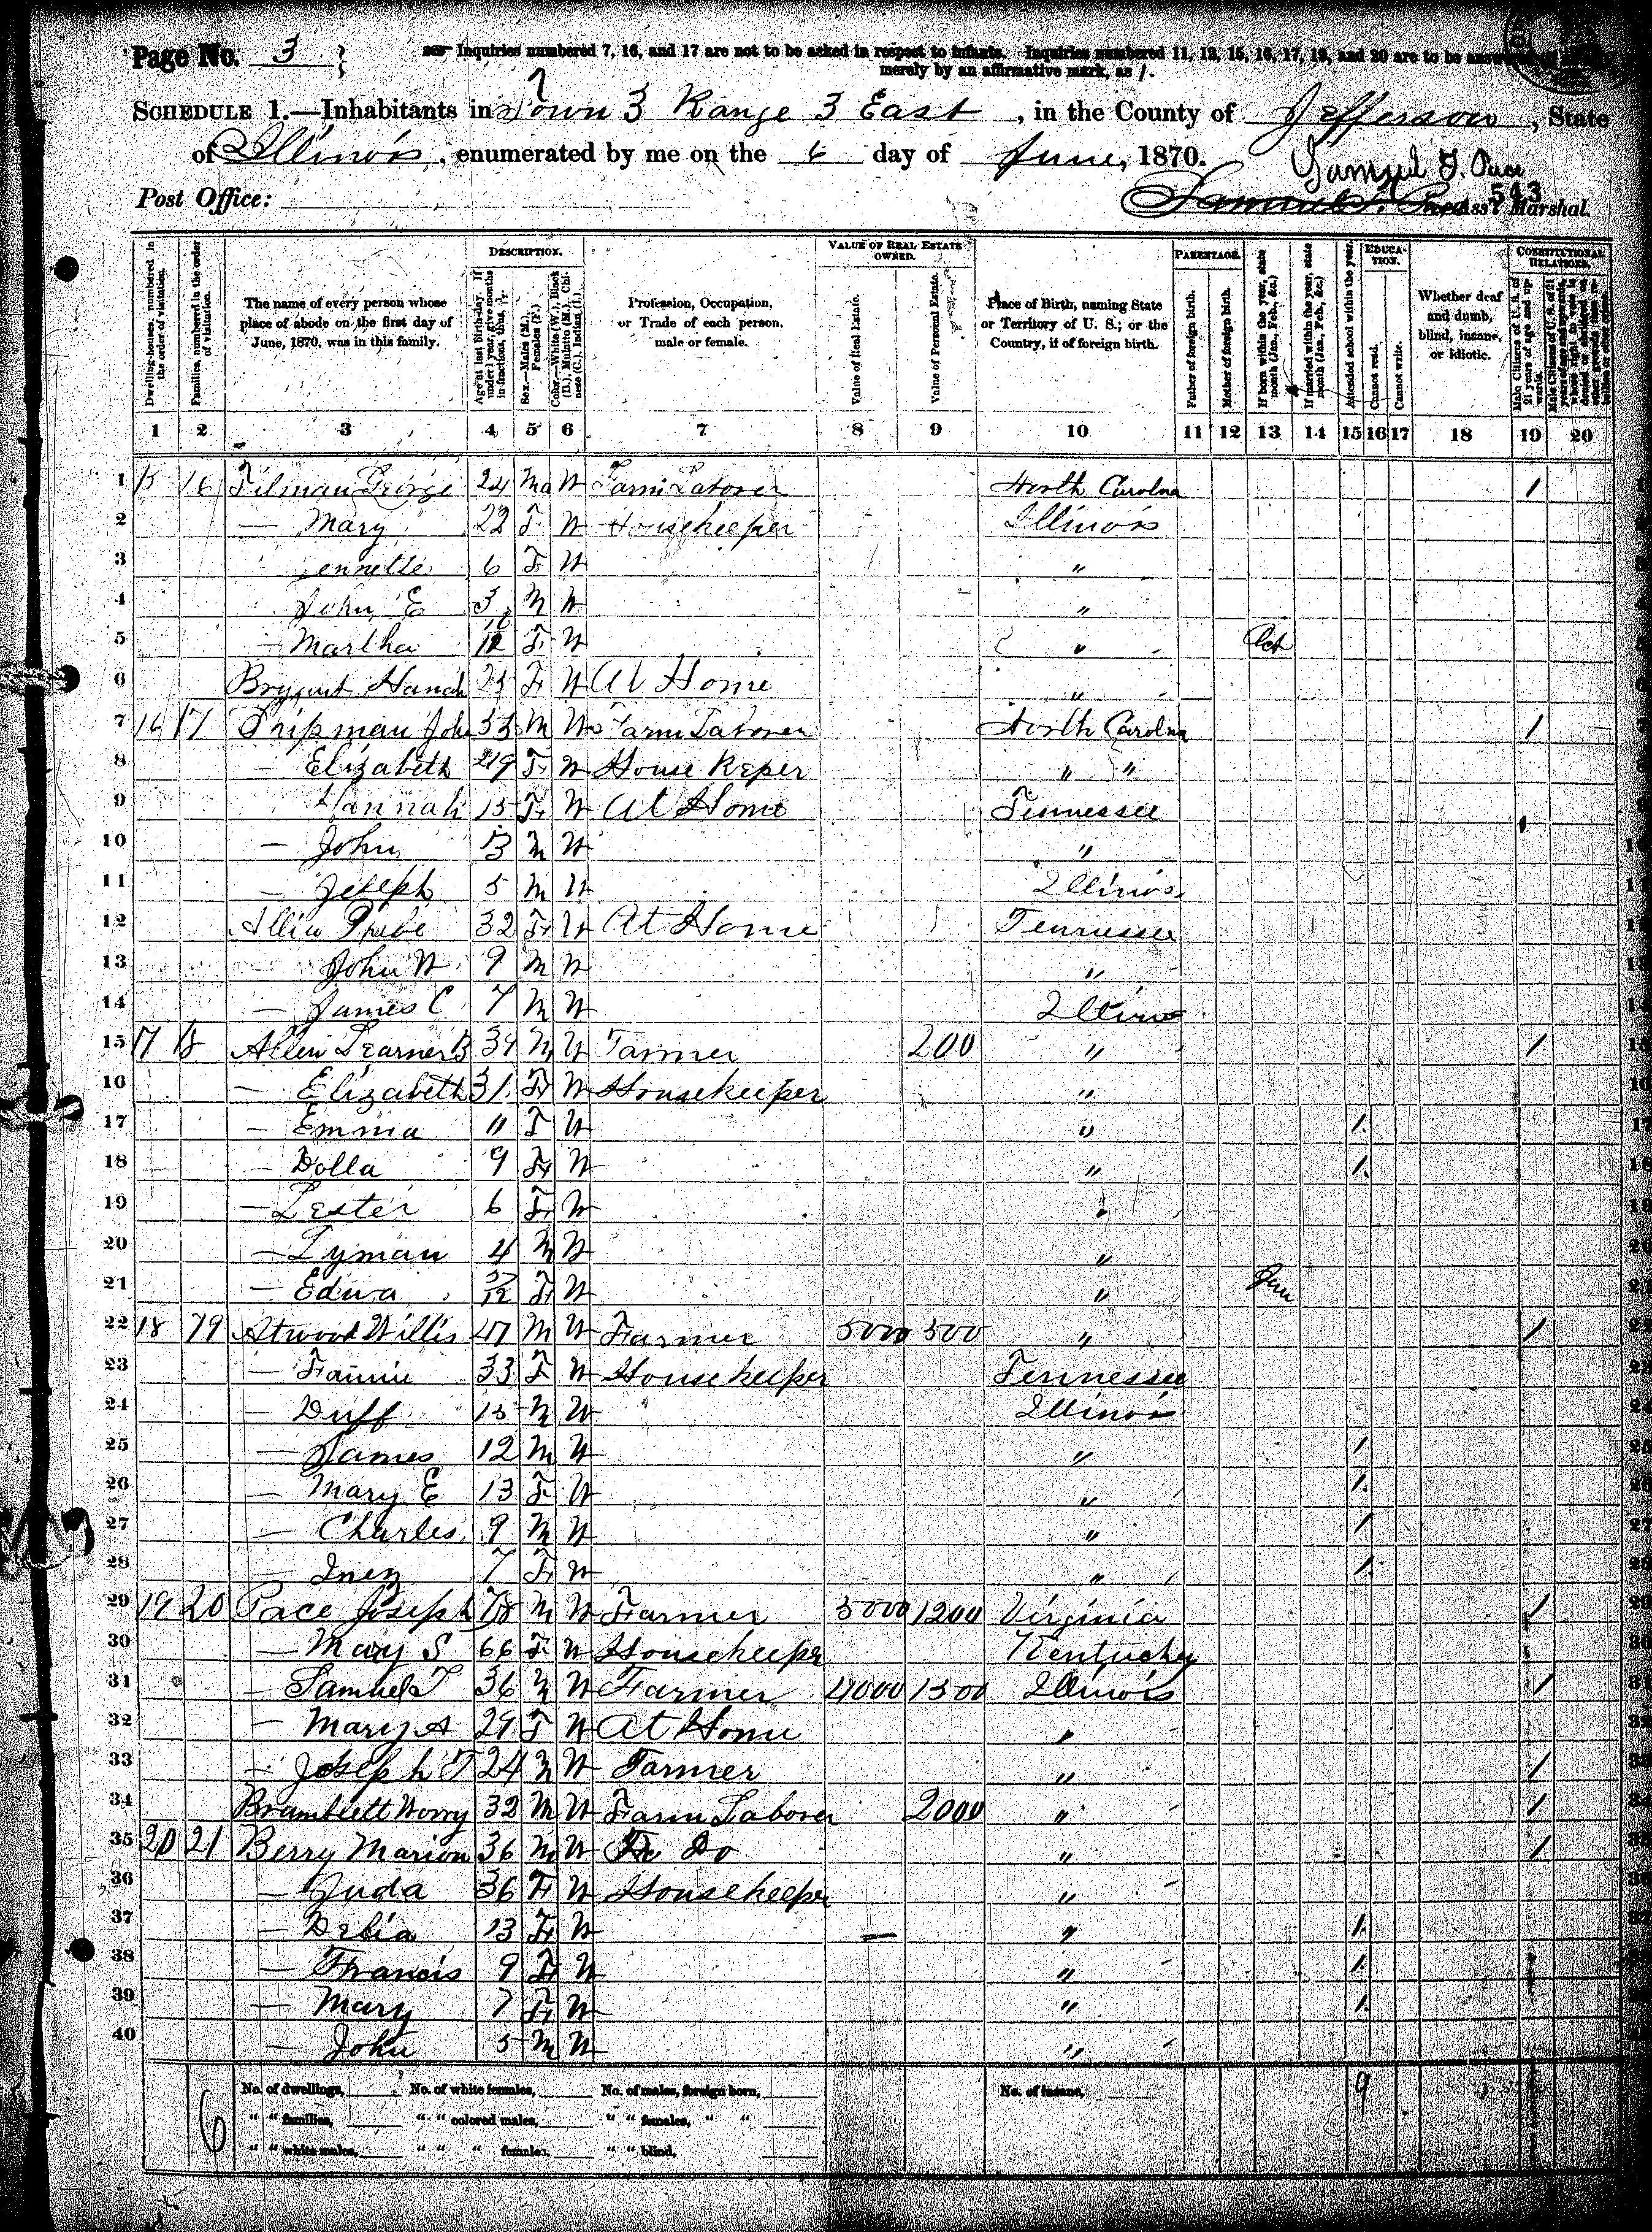 Page No. 3
Inquiries numbered 7, 16, and 17 are not to be asked in respect to infants. Inquiries numbered 11, 12, 15, 16, 17, 19, and 20 are to be answered
merely by an affirmative mark, as /.
SCHEDULE 1.—Inhabitants in Town 3 Range 3 East, in the County of Jefferson, State
of Illinois, enumerated by me on the 6 day of June, 1870.
Samuel T. Pace
Post Office: 543 Ass't Marshal.
DESCRIPTION. VALUE OF REAL ESTATE OWNED. PARENTAGE. EDUCATION. CONSTITUTIONAL RELATIONS.
Dwelling-houses, numbered in the order of visitation.
Families, numbered in the order of visitation.
The name of every person whose place of abode on the first day of June, 1870, was in this family.
Age at last birth-day. If under 1 year, give months in fractions, thus,
Sex.—Males (M.), Females (F.)
Color.—White (W.), Black (B.), Mulatto (M.), Chinese (C.), Indian (I.)
Profession, Occupation, or Trade of each person, male or female.
Value of Real Estate.
Value of Personal Estate.
Place of Birth, naming State or Territory of U. S.; or the Country, if of foreign birth.
Father of foreign birth.
Mother of foreign birth.
If born within the year, state month (Jan., Feb., &c.)
If married within the year, state month (Jan., Feb., &c.)
Attended school within the year.
Cannot read.
Cannot write.
Whether deaf and dumb, blind, insane, or idiotic.
Male Citizens of U. S. of 21 years of age and upwards.
1 2 3 4 5 6 7 8 9 10 11 12 13 14 15 16 17 18 19 20
1 15 16 Tilman George 24 Ma W Farm Laborer North Carolina /
2 — Mary 22 F W Housekeeper Illinois
3 Jennette 6 F W "
4 John E 3 M W "
5 — Martha F W " Oct
6 Bryant Hanah 23 F W At Home "
7 16 17 Tripman John 33 M W Farm Laborer North Carolina /
8 — Elizabeth F W House Keper " "
9 Hannah 15 F W At Home Tennessee
10 — John 13 M W "
11 — Joseph 5 M W Illinois
12 Allin Phebe 32 F W At Home Tennessee
13 John W 9 M W "
14 — James C 7 M W Illinois
15 17 18 Allen Learner B 39 M W Farmer 200 " /
16 — Elizabeth 31 F W Housekeeper "
17 — Emma 11 F W " 1
18 — Dolla 9 F W " 1
19 — Lester 6 F W "
20 — Lyman 4 M W "
21 — Edwa 5/12 F W " Jan
22 18 19 Atwood Willis 47 M W Farmer 5000 500 " /
23 — Fannie 33 F W Housekeeper Tennessee
24 — Duff 15 M W Illinois
25 — James 12 M W " 1
26 — Mary E 13 F W " 1
27 — Charles 9 M W " 1
28 — Inez 7 F W " 1
29 19 20 Pace Joseph 78 M W Farmer 5000 1200 Virginia /
30 — Mary S 66 F W Housekeeper Kentucky
31 — Samuel T 36 M W Farmer 4000 1500 Illinois /
32 — Mary A 29 F W At Home "
33 — Joseph T 24 M W Farmer " /
34 Bramblett 32 M W Farm Laborer 2000 " /
35 20 21 Berry Marion 36 M W Do " /
36 — Juda 36 F W Housekeeper "
37 — Delia 13 F W — " 1
38 — Francis 9 F W " 1
39 — Mary 7 F W " 1
40 — John 5 M W "
No. of dwellings, No. of white females, No. of males, foreign born, No. of insane, 9
6 " " families, " " colored males, " " females, " "
" " white males, " " " females, " " blind,